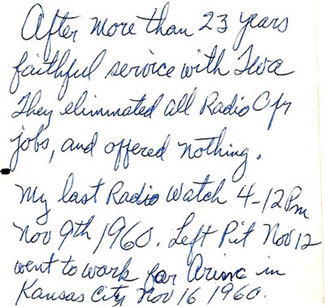 After more than 23 years
faithful service with Twa
They eliminated all Radio Opr
jobs, and offered nothing.
My last Radio Watch 4-12 Pm
Nov 9th 1960. Left Pit Nov 12
went to work for Arinc in
Kansas City Nov 16 1960.